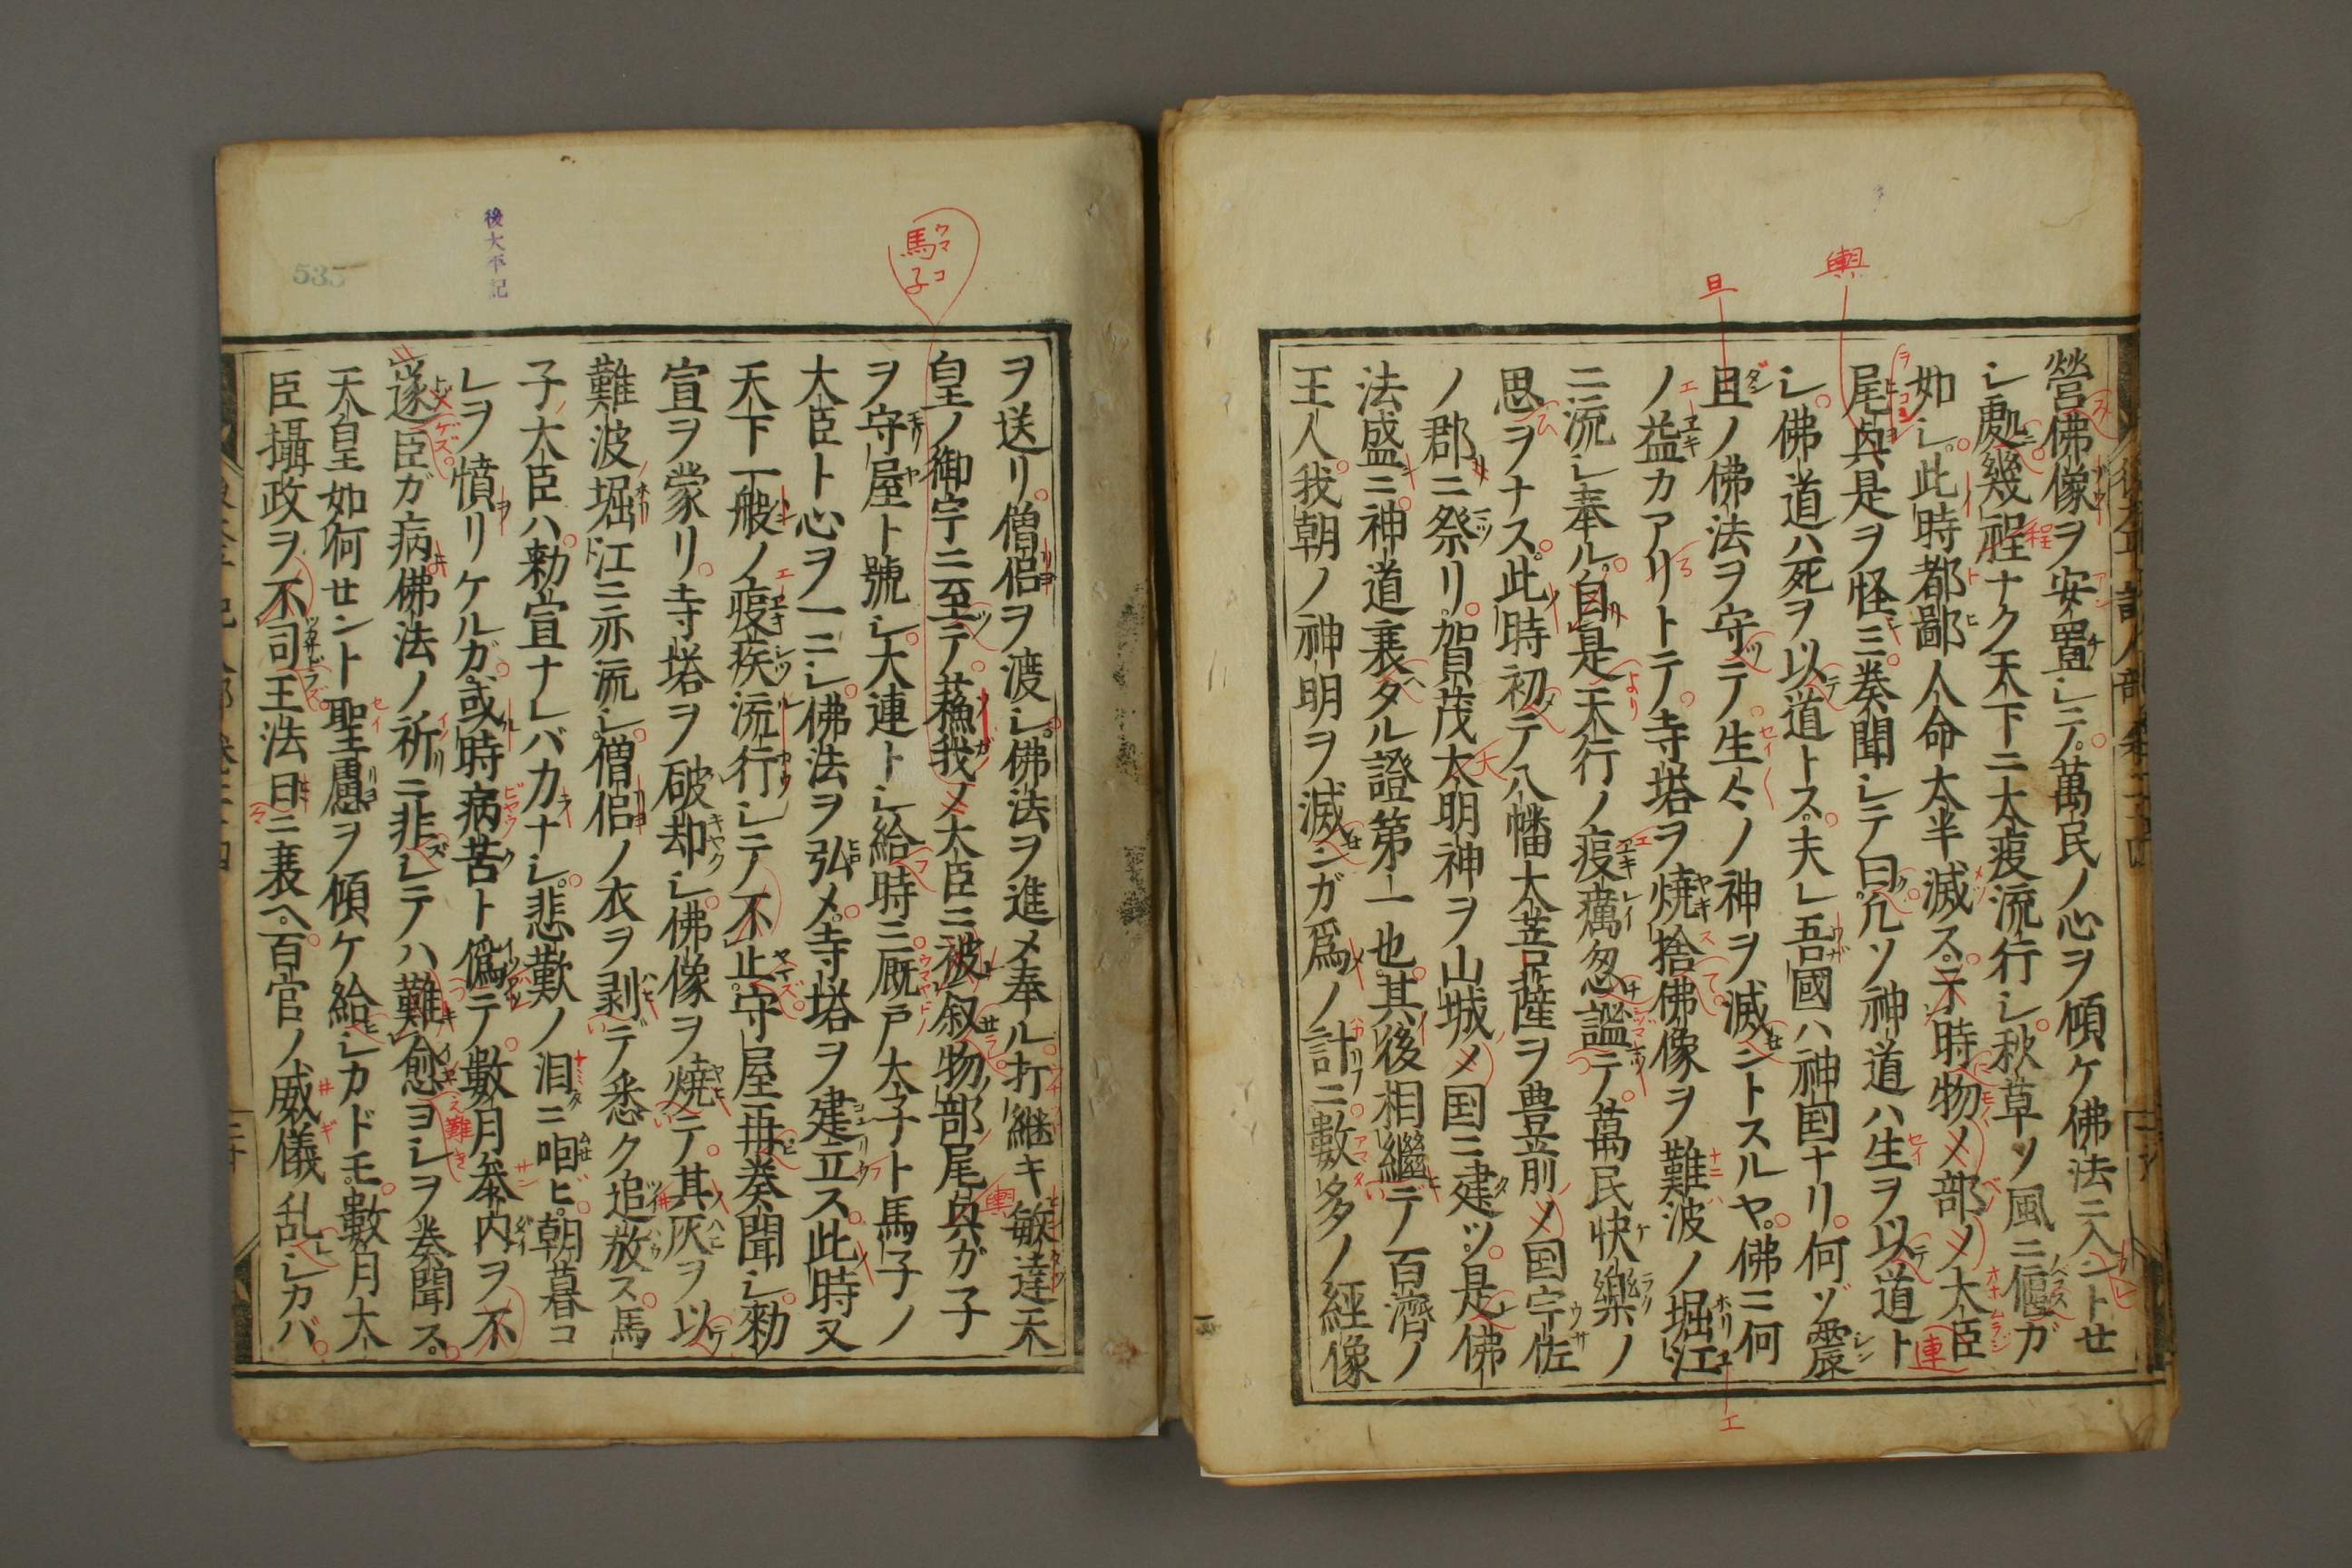 營佛像ヲ安置シテ萬民ノ心ヲ傾ケ佛法ニ入ントセ
シ處幾程ナク天下ニ大疫流行シ秋草ノ風ニ偃ガ
如シ此時都鄙人命太半滅ス于時物ノ部ノ大臣
尾輿是ヲ怪ミ奏聞シテ曰凡ソ神道ハ生ヲ以道ト
シ佛道ハ死ヲ以道トス夫レ吾國ハ神国ナリ何ゾ震
旦ノ佛法ヲ守テ生々ノ神ヲ滅ントスルヤ佛ニ何
ノ益カアリトテ寺塔ヲ燒捨佛像ヲ難波ノ堀江
ニ流シ奉ル自是天行ノ疫癘忽謐テ萬民快樂ノ
思ヲナス此時初テ八幡大菩薩ヲ豊前ノ国宇佐
ノ郡ニ祭リ賀茂大明神ヲ山城ノ国ニ建ツ是佛
法盛ニ神道衰タル證第一也其後相繼テ百濟ノ
王人我朝ノ神明ヲ滅ンガ爲ノ計ニ數多ノ經像
ヲ送リ僧侶ヲ渡シ佛法ヲ進メ奉ル打継キ敏達天
皇ノ御宇ニ至テ蘇我ノ大臣ニ被叙物部尾輿ガ子
ヲ守屋ト號シ大連トシ給時ニ厩戸太子ト馬子ノ
大臣ト心ヲ一ニシ佛法ヲ弘メ寺塔ヲ建立ス此時又
天下一般ノ疫疾流行シテノ不止守屋再奏聞シ勅
宣ヲ蒙リ寺塔ヲ破却シ佛像ヲ燒テ其灰ヲ以
難波堀江ニ亦流シ僧侶ノ衣ヲ剥デ悉ク追放ス馬
子大臣ハ勅宣ナレバカナシ悲歎ノ泪ニ咽ビ朝暮コ
レヲ憤リケルガ或時病苦ト僞テ數月參内ヲ不
遂臣ガ病佛法ノ祈ニ非レテハ難愈ヨシヲ奏聞ス
天皇如何セント聖慮ヲ傾ケ給シカドモ數月大
臣攝政ヲ不司王法日ニ衰ヘ百官ノ威儀乱シカバ
馬子
ウマコ
旦
輿
後太平記
535